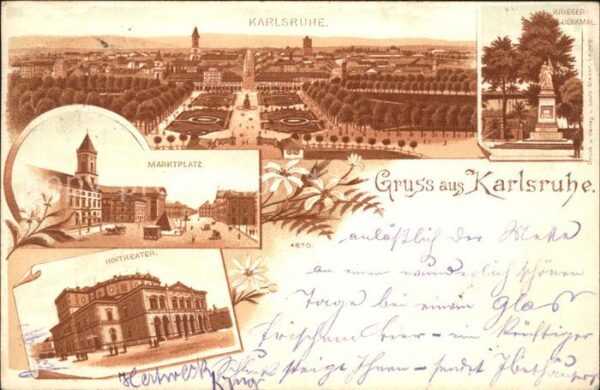 KARLSRUHE.
KRIEGER-
DENKMAL.
MARKTPLATZ
Gruss aus Karlsruhe.
4670.
HOFTHEATER.
anläßlich der
an einem wunderlich schönen
Tage bei einem Glas
frischem Bier - ein kräftiger
Schluck steigt Ihnen - sendet